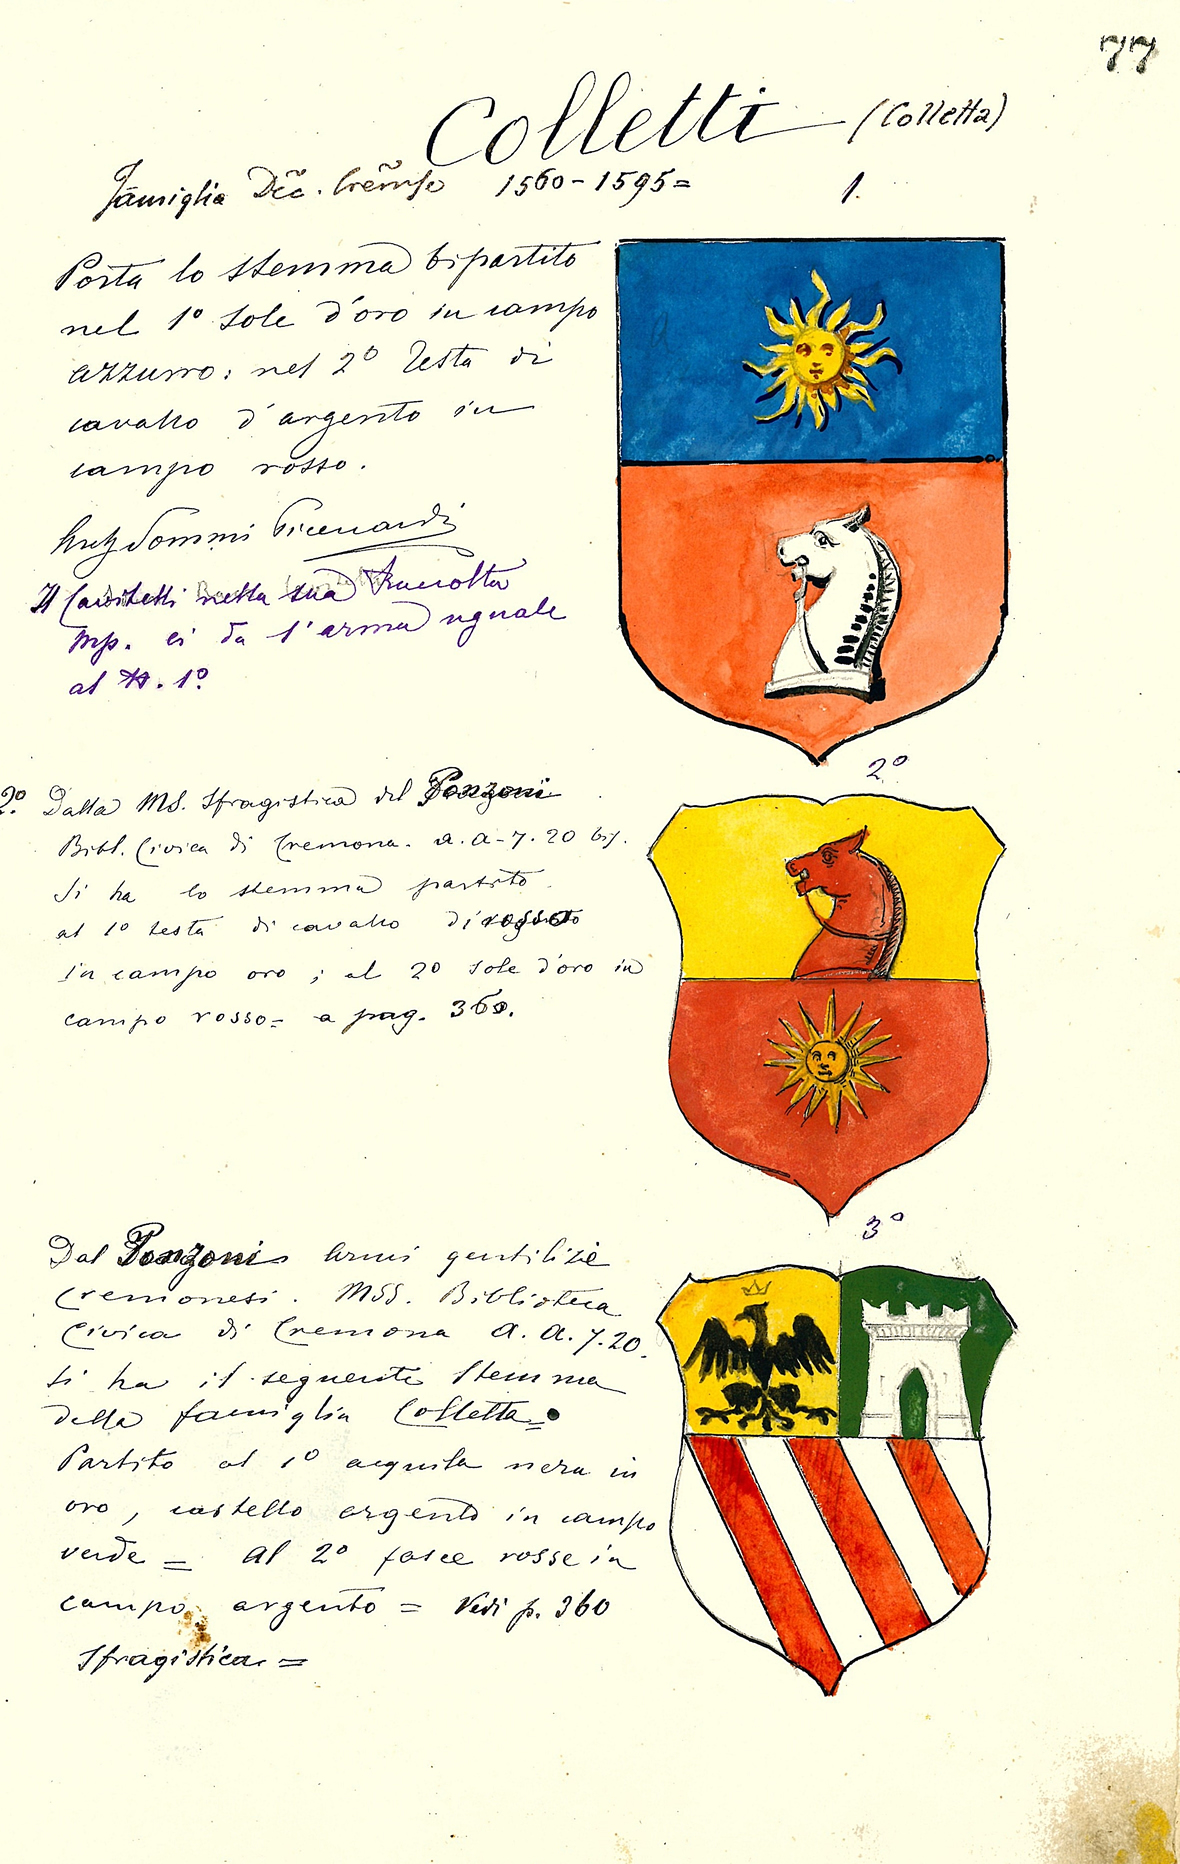 77
Colletti (Colletta)
Famiglia Dec̃. Crem̃se 1560-1595=
1.
Porta lo stemma bipartito
nel 1º Sole d'oro in campo
azzurro: nel 2º Testa di
cavallo d'argento in
campo rosso.
Sommi Picenardi
Il nella sua Raccolta
mp. ci dà l'arma uguale
al N. 1º.
2º
2º. Dalla MS. Sfragistica del Ponzoni
Bibl. Civica di Cremona. a.a-7.20 bis.
Si ha lo stemma partito
al 1º testa di cavallo di rosso
in campo oro; al 2º Sole d'oro in
campo rosso= a pag. 360.
3º
Dal Ponzoni Armi gentilizie
Cremonesi. MSS. Biblioteca
Civica di Cremona A.A.7.20.
Si ha il seguente Stemma
della famiglia Colletta=
Partito al 1º acquila nera in
oro, castello argento in campo
verde = Al 2º fasce rosse in
campo argento = Vedi p. 360
Sfragistica =